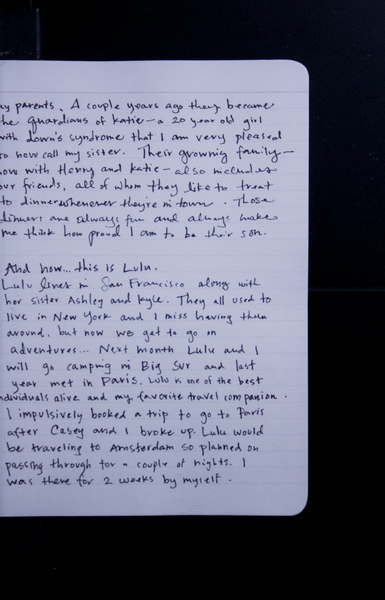 my parents. A couple years ago they became
the guardians of Katie - a 20 year old girl
with down's syndrome that I am very pleased
to now call my sister. Their growing family -
now with Henry and Katie - also includes
our friends, all of whom they like to treat
to dinner whenever they're in town. Those
dinners are always fun and always make
me think how proud I am to be their son.
And now... this is Lulu.
Lulu lives in San Francisco along with
her sister Ashley and Kyle. They all used to
live in New York and I miss having them
around, but now we get to go on
adventures... Next month Lulu and I
will go camping in Big Sur and last
year met in Paris. Lulu is one of the best
individuals alive and my favorite travel companion.
I impulsively booked a trip to go to Paris
after Casey and I broke up. Lulu would
be traveling to Amsterdam so planned on
passing through for a couple of nights. I
was there for 2 weeks by myself.